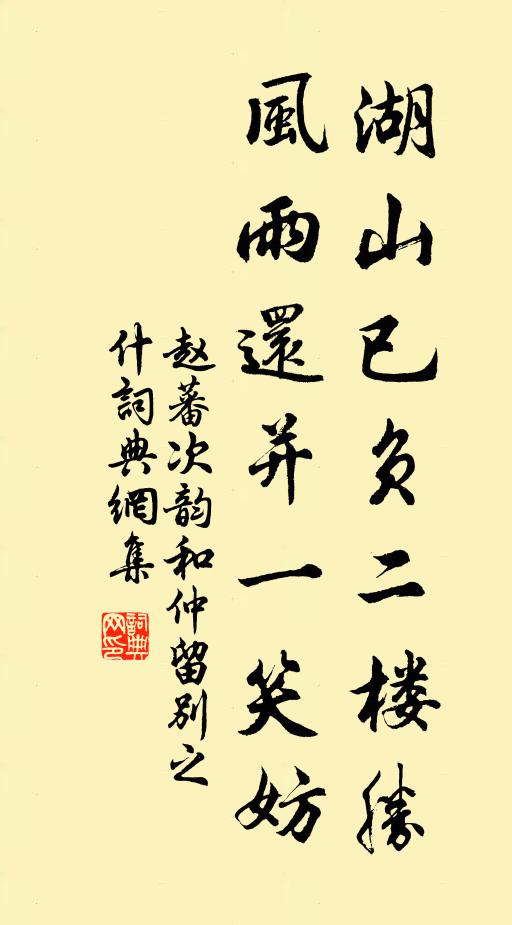 湖山已负二楼勝
風雨還并一笑妨
赵蕃次韵和仲留别之
什詞典網集
詞典网印